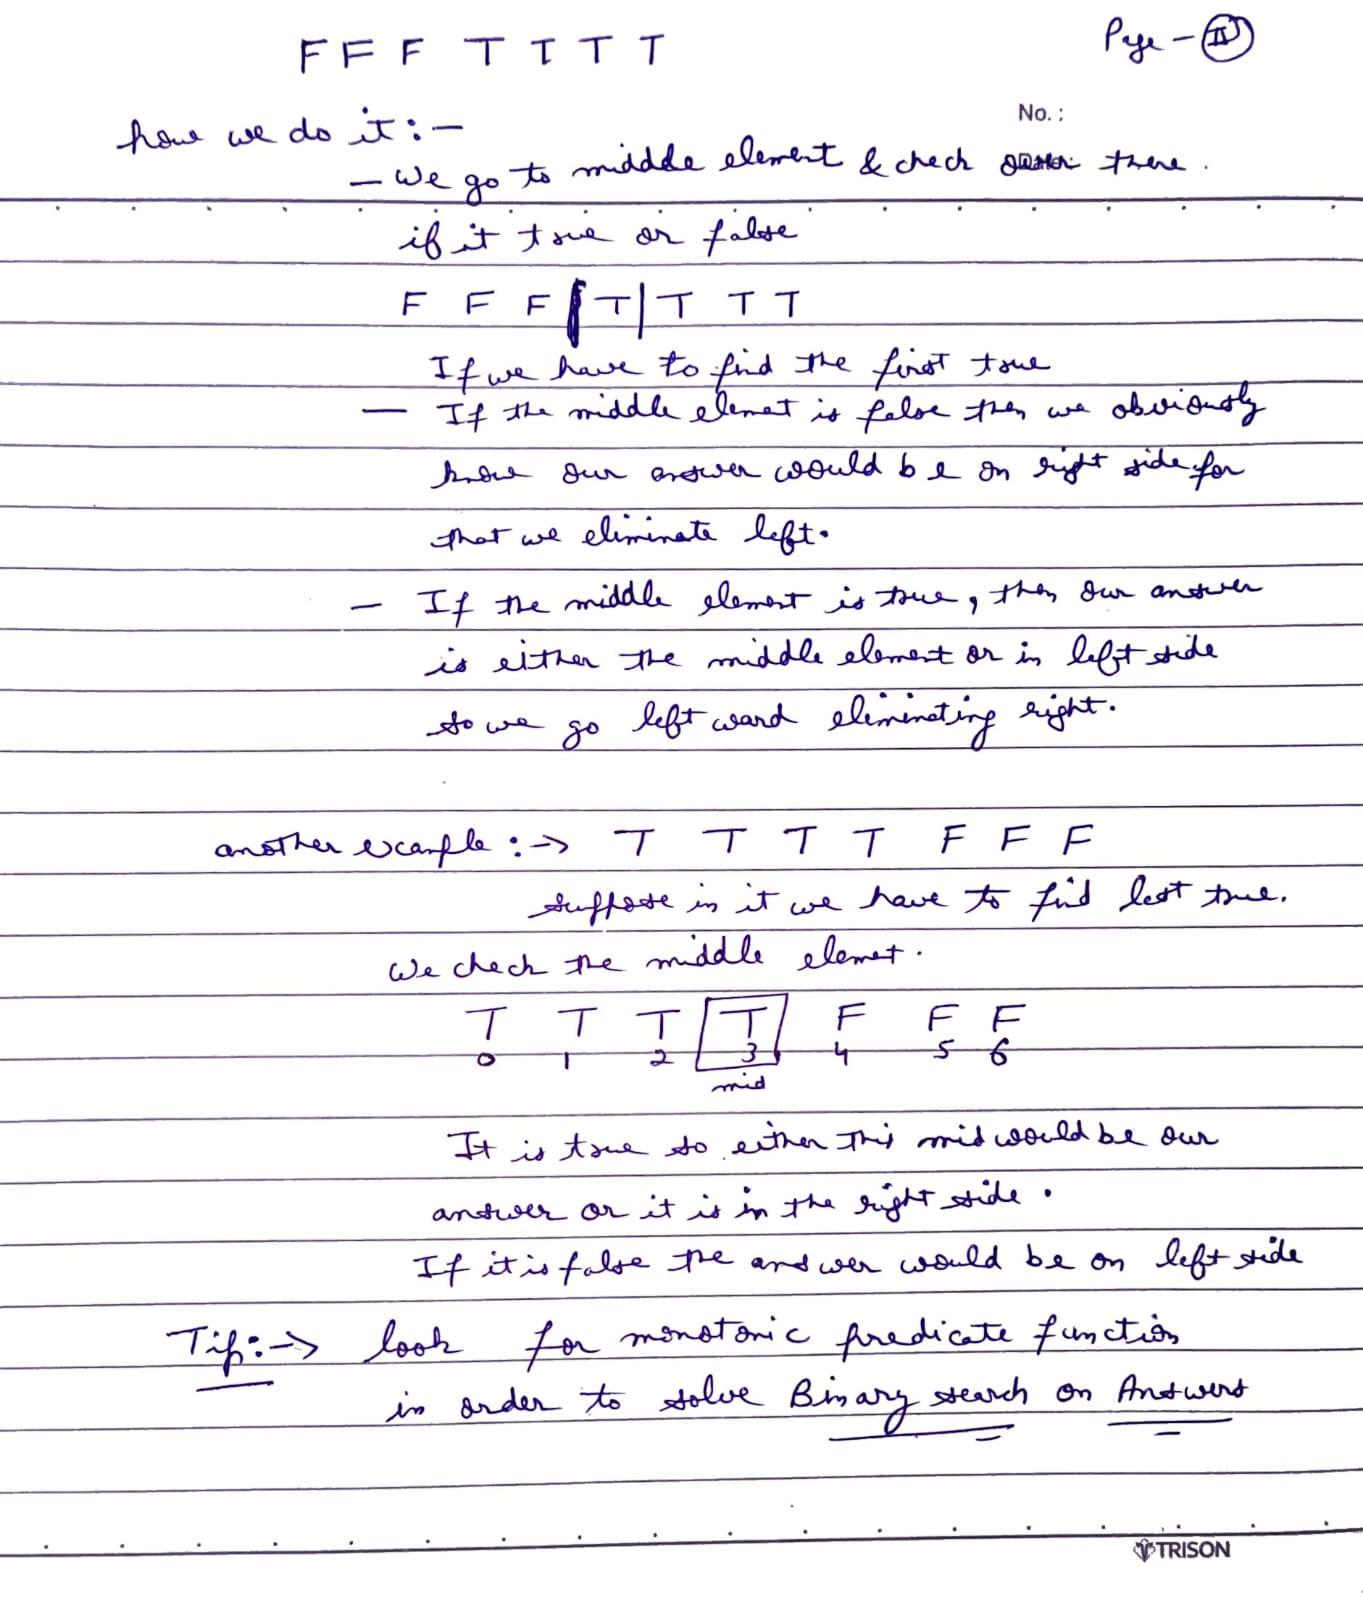 F F F T T T T
Page - II
No. :
how we do it :-
- We go to middle element & check there.
if it true or false
F F F | T | T T T
If we have to find the first true
- If the middle elemet is false then we obviously
know our answer would be on right side for
that we eliminate left.
- If the middle element is true, then our answer
is either the middle element or in left side
so we go left ward eliminating right.
another example :-> T T T T F F F
suppose in it we have to find last true.
We check the middle elemet.
T T T T F F F
0 1 2 3 4 5 6
mid
It is true so either this mid would be our
answer or it is in the right side.
If it is false the answer would be on left side
Tip:-> look for monotonic predicate function
in order to solve Binary search on Answers
TRISON